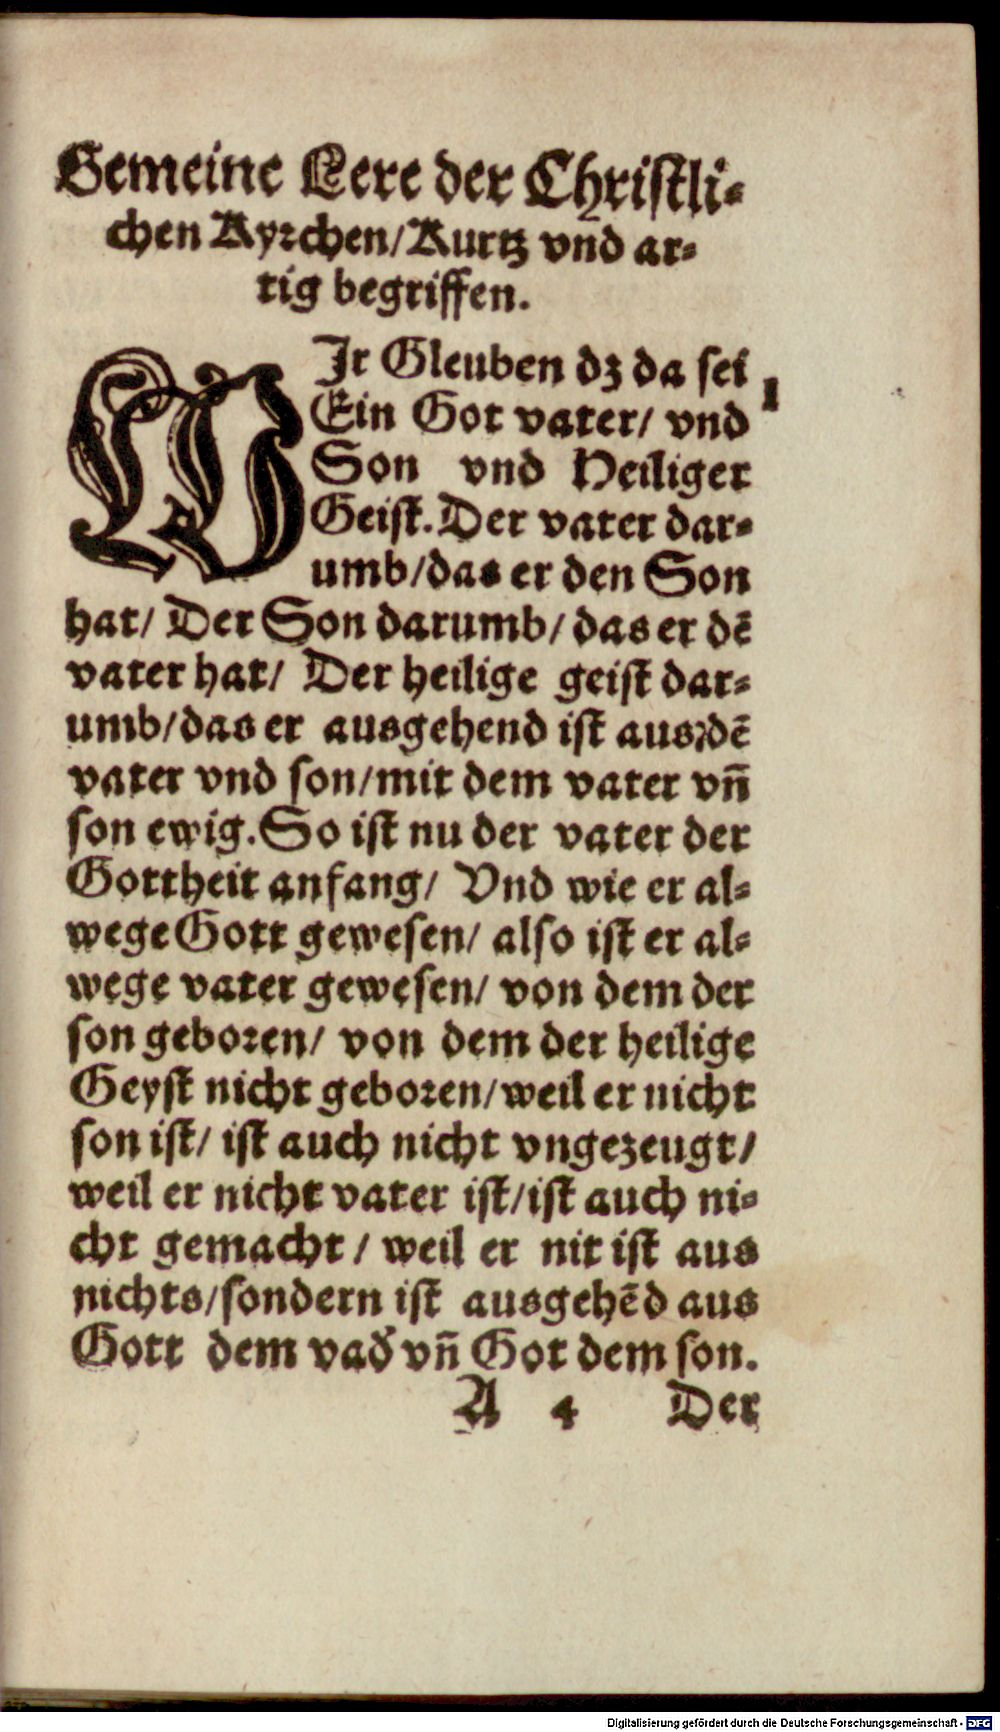 Gemeine Lere der Christli⸗
chen Kyrchen/Kurtz vnd ar⸗
tig begriffen.
WJr Gleuben dz da sei
1
Ein Got vater/ vnd
Son vnd Heiliger
Geist. Der vater dar⸗
umb/das er den Son
hat/ Der Son darumb/ das er dē
vater hat/ Der heilige geist dar⸗
umb/das er ausgehend ist aus dē
vater vnd son/mit dem vater vn̄
son ewig. So ist nu der vater der
Gottheit anfang/ Vnd wie er al⸗
wege Gott gewesen/ also ist er al⸗
wege vater gewesen/ von dem der
son geboren/ von dem der heilige
Geyst nicht geboren/weil er nicht
son ist/ ist auch nicht vngezeugt/
weil er nicht vater ist/ist auch ni⸗
cht gemacht/ weil er nit ist aus
nichts/sondern ist ausgehēd aus
Gott dem vad̛ vn̄ Got dem son.
A 4 Der
Digitalisierung gefördert durch die Deutsche Forschungsgemeinschaft - DFG